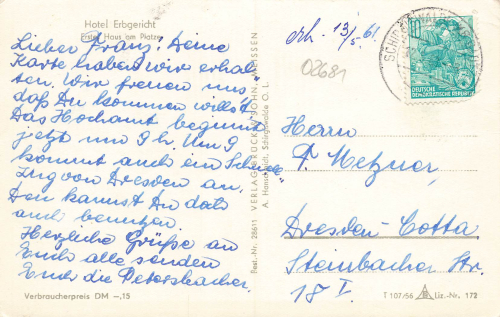 Hotel Erbgericht
Erstes Haus am Platze
Lieber Franz! Deine
Karte haben wir erhal-
ten. Wir freuen uns
daß Du kommen willst.
Das Hochamt beginnt
jetzt um 9 h. Um 9
kommt auch ein Schnell-
zug von Dresden an.
Den kannst Du dato
auch benutzen.
Herzliche Grüße an
Euch alle senden
Euch die Petersbacher.
Verbraucherpreis DM —,15
Best.-Nr. 28611 VERLAG BRÜCK & SOHN, MEISSEN
erh. 13/5. 61.
02681
DEUTSCHE
DEMOKRATISCHE REPUBLIK
10
Herrn
F. Metzner,
Dresden-Cotta
Steinbacher Str.
18 I.
T 107/56 Liz.-Nr. 172